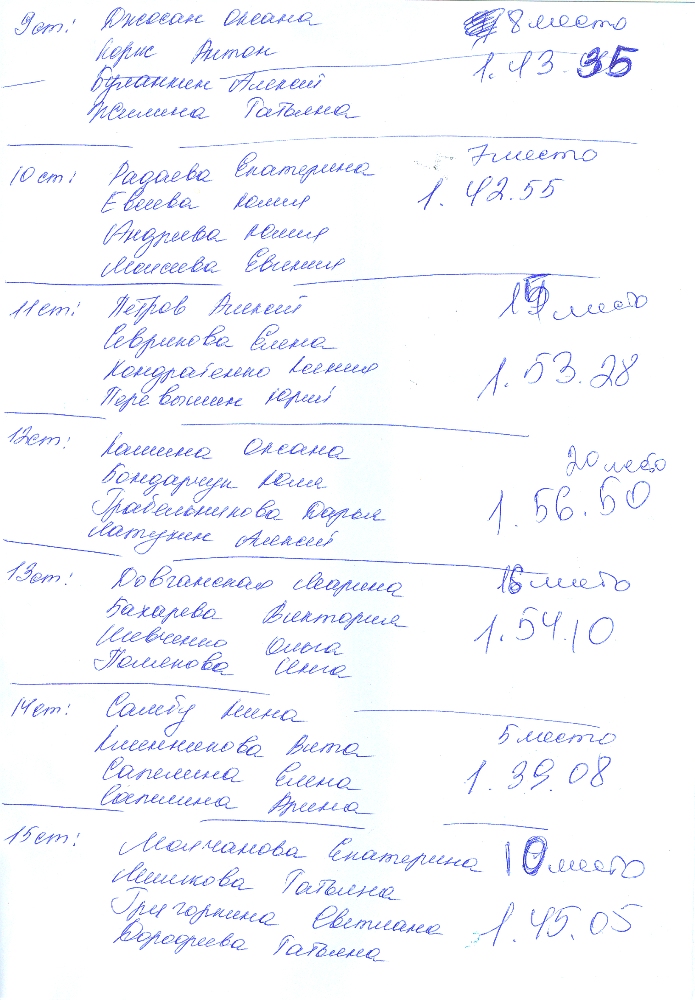 9ст: Джосан Оксана 8 место
Корж Антон 1.43.35
Буланкин Алексей
Жилина Татьяна
10ст: Радаева Екатерина 7 место
Евсеева Юлия 1.42.55
Андреева Юлия
Моисеева Евгения
11ст: Петров Алексей место
Севрикова Елена
Кондратенко Ксения 1.53.28
Перевышин Юрий
12ст: Кашина Оксана 20 место
Бондарчук Юля
Грабельникова Дарья 1.56.50
Латухин Алексей
13ст: Довганская Марина 16 место
Бахарева Виктория
Шевченко Ольга 1.54.10
Инга
14ст: Самбу Нина 5 место
Вита
Сапелина Елена 1.39.08
Сапелина Арина
15ст: Молчанова Екатерина 10 место
Мишкова Татьяна
Григоркина Светлана 1.45.05
Дорофеева Татьяна